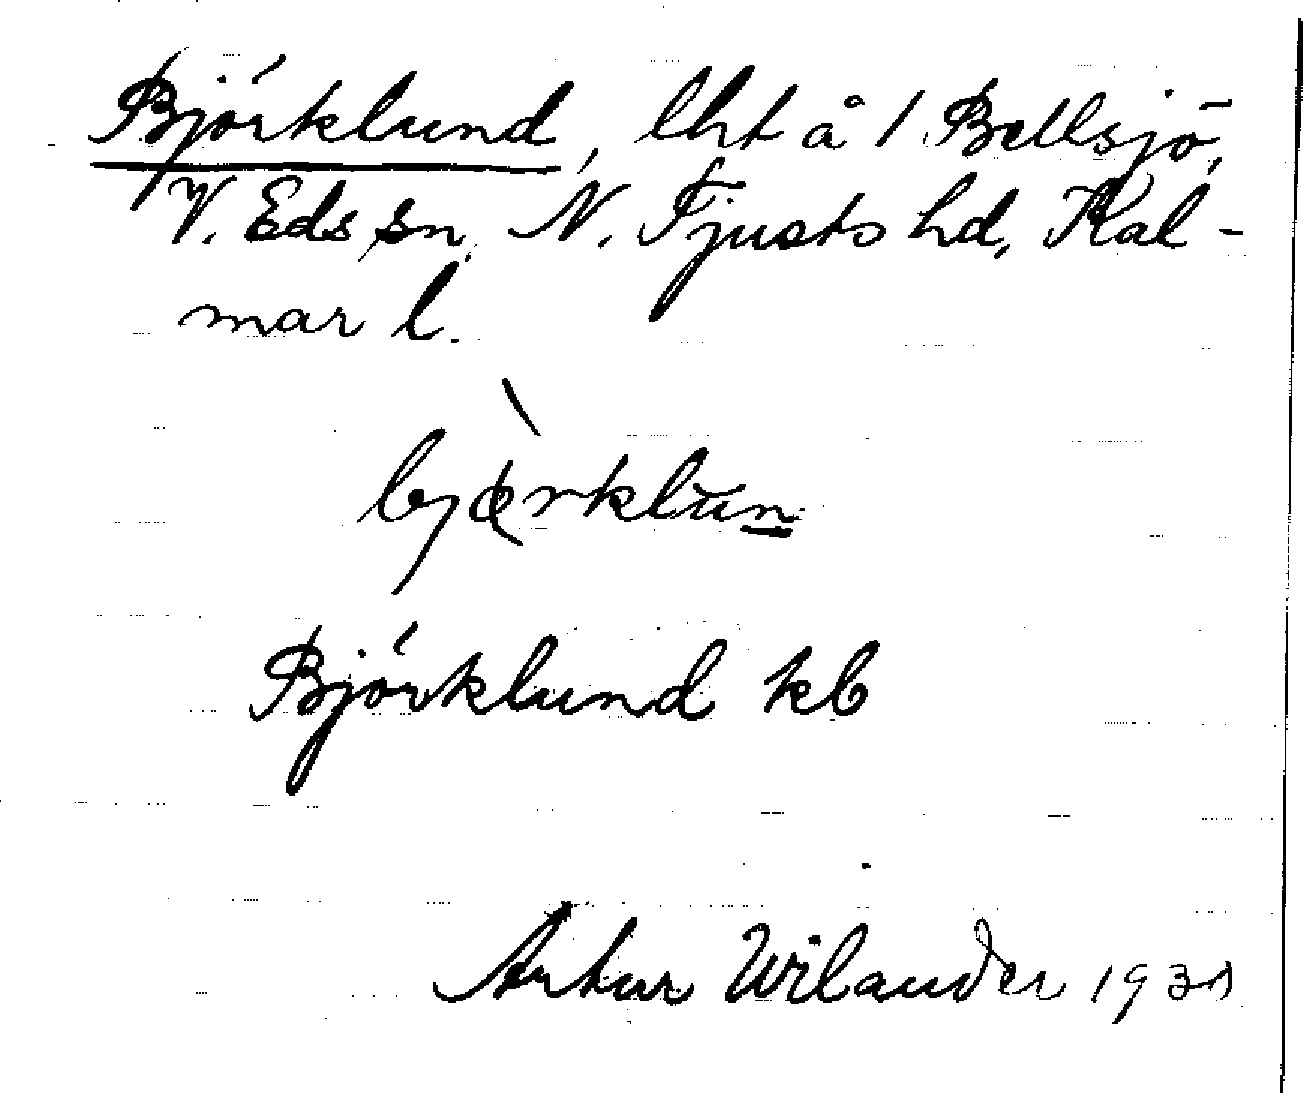 Björklund, lht å 1 Bellsjö,
V. Eds sn, N. Tjusts hd, Kal-
mar l.
Björklund kb
Artur Wilander